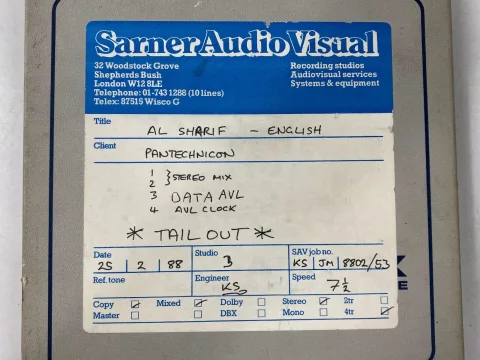 Sarner Audio Visual
32 Woodstock Grove
Shepherds Bush
London W12 8LE
Telephone: 01-743 1288 (10 lines)
Telex: 87515 Wisco G
Recording studios
Audiovisual services
Systems & equipment
Title AL SHARIF - ENGLISH
Client PANTECHNICON
1 } STEREO MIX
2
3 DATA AVL
4 AVL CLOCK
* TAIL OUT *
Date 25 | 2 | 88
Studio 3
SAV job no. KS | JM | 8802/53
Ref. tone
Engineer KS
Speed 7½
Copy Mixed Dolby Stereo 2tr
Master DBX Mono 4tr